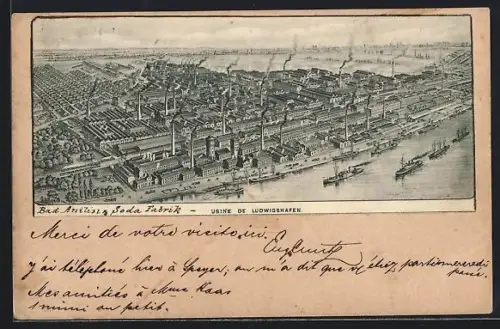 Bad Anilin & Soda Fabrik - USINE DE LUDWIGSHAFEN.
Merci de votre visite ici.
J'ai téléphoné hier à Speyer, on m'a dit que étiez parti mercredi
passé.
Mes amitiés à Mme Kaas
au petit.